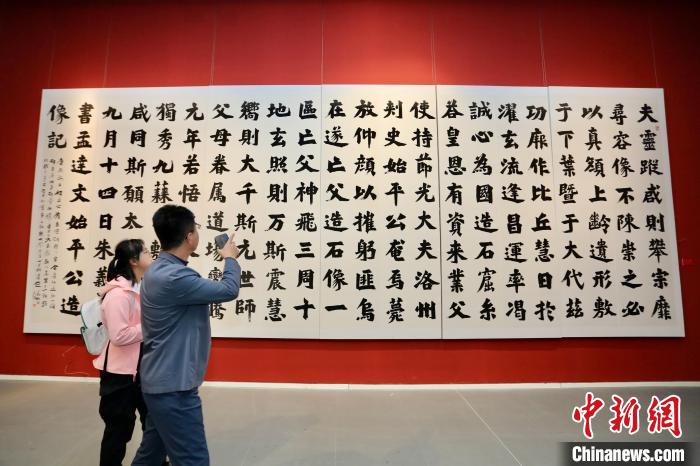 夫靈蹤咸則舉宗靡
尋容像不陳崇之必
以真顏上齡遺形敷
于下葉暨于大代茲
功厥作比丘慧日於
濯玄流逢昌運率渴
誠心為國造石窟糸
荅皇恩有資來業父
使持節光大夫洛州
刾史始平公奄焉薨
放仰顏以摧躬匪烏
在遂亡父造石像一
區亡父神飛三周十
地玄照則万斯震慧
嚮則大千斯元世師
父母眷属道場鸞
元年若悟
獨秀九蕀敷
咸同斯願太
九月十四日朱義
書孟達文始平公造
像記
中新网
Chinanews.com